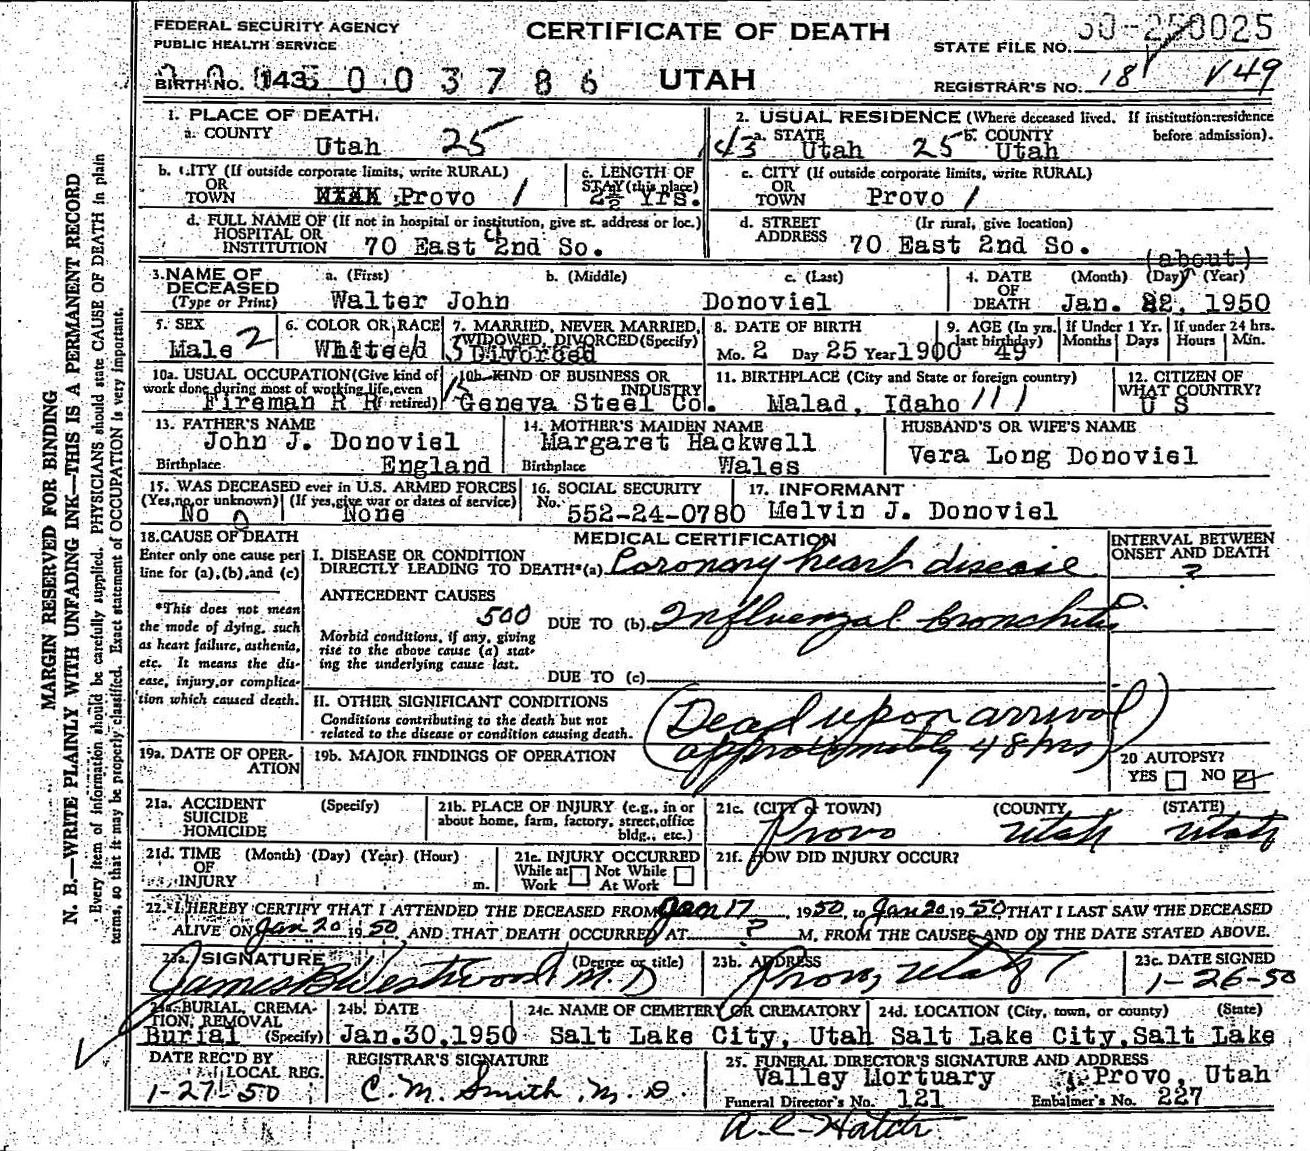 FEDERAL SECURITY AGENCY
PUBLIC HEALTH SERVICE
CERTIFICATE OF DEATH
STATE FILE NO. 0025
BIRTH NO. 143 003786
UTAH
REGISTRAR'S NO. 18 149
MARGIN RESERVED FOR BINDING
N. B.—WRITE PLAINLY WITH UNFADING INK—THIS IS A PERMANENT RECORD
Every item of information should be carefully supplied. PHYSICIANS should state CAUSE OF DEATH in plain
terms, so that it may be properly classified. Exact statement of OCCUPATION is very important.
1. PLACE OF DEATH.
a. COUNTY
Utah 25
2. USUAL RESIDENCE (Where deceased lived. If institution: residence
before admission).
a. STATE b. COUNTY
43 Utah 25 Utah
b. CITY (If outside corporate limits, write RURAL)
OR
TOWN Provo 1
c. LENGTH OF
STAY (this place)
Yrs.
c. CITY (If outside corporate limits, write RURAL)
OR
TOWN Provo 1
d. FULL NAME OF (If not in hospital or institution, give st. address or loc.)
HOSPITAL OR
INSTITUTION 70 East 2nd So.
d. STREET (If rural, give location)
ADDRESS 70 East 2nd So.
3. NAME OF DECEASED
(Type or Print)
a. (First) b. (Middle) c. (Last)
Walter John Donoviel
4. DATE OF DEATH (Month) (Day) (Year)
(about)
Jan. 22, 1950
5. SEX
Male 2
6. COLOR OR RACE
White
7. MARRIED, NEVER MARRIED,
WIDOWED, DIVORCED (Specify)
5 Divorced
8. DATE OF BIRTH
Mo. 2 Day 25 Year 1900
9. AGE (In yrs. last birthday)
49
If Under 1 Yr.
Months Days
If under 24 hrs.
Hours Min.
10a. USUAL OCCUPATION (Give kind of
work done during most of working life, even
if retired)
Fireman R R
10b. KIND OF BUSINESS OR
INDUSTRY
Geneva Steel Co.
11. BIRTHPLACE (City and State or foreign country)
Malad, Idaho 111
12. CITIZEN OF
WHAT COUNTRY?
U S
13. FATHER'S NAME
John J. Donoviel
Birthplace England
14. MOTHER'S MAIDEN NAME
Margaret Hackwell
Birthplace Wales
HUSBAND'S OR WIFE'S NAME
Vera Long Donoviel
15. WAS DECEASED ever in U.S. ARMED FORCES
(Yes, no, or unknown) (If yes, give war or dates of service)
No 0 None
16. SOCIAL SECURITY
No. 552-24-0780
17. INFORMANT
Melvin J. Donoviel
18. CAUSE OF DEATH
Enter only one cause per
line for (a), (b), and (c)
*This does not mean
the mode of dying, such
as heart failure, asthenia,
etc. It means the dis-
ease, injury, or complica-
tion which caused death.
MEDICAL CERTIFICATION
I. DISEASE OR CONDITION
DIRECTLY LEADING TO DEATH*(a) Coronary heart disease
INTERVAL BETWEEN
ONSET AND DEATH
?
ANTECEDENT CAUSES
500
Morbid conditions, if any, giving
rise to the above cause (a) stat-
ing the underlying cause last.
DUE TO (b) Influenzal bronchitis
DUE TO (c)
II. OTHER SIGNIFICANT CONDITIONS
Conditions contributing to the death but not
related to the disease or condition causing death.
(Dead upon arrival
approximately 48 hrs)
19a. DATE OF OPER-
ATION
19b. MAJOR FINDINGS OF OPERATION
20 AUTOPSY?
YES NO
21a. ACCIDENT
SUICIDE
HOMICIDE
(Specify)
21b. PLACE OF INJURY (e.g., in or
about home, farm, factory, street, office
bldg., etc.)
21c. (CITY or TOWN) (COUNTY (STATE)
Provo Utah Utah
21d. TIME
OF
INJURY
(Month) (Day) (Year) (Hour)
m.
21e. INJURY OCCURRED
While at Work Not While At Work
21f. HOW DID INJURY OCCUR?
22. I HEREBY CERTIFY THAT I ATTENDED THE DECEASED FROM Jan 17, 1950, to Jan 20 1950 THAT I LAST SAW THE DECEASED
ALIVE ON Jan 20 1950 AND THAT DEATH OCCURRED AT ? M, FROM THE CAUSES AND ON THE DATE STATED ABOVE.
23a. SIGNATURE (Degree or title)
James B Westwood M. D
23b. ADDRESS
Provo, Utah
23c. DATE SIGNED
1-26-50
24a. BURIAL, CREMA-
TION, REMOVAL
Burial (Specify)
24b. DATE
Jan. 30, 1950
24c. NAME OF CEMETERY OR CREMATORY
Salt Lake City, Utah
24d. LOCATION (City, town, or county) (State)
Salt Lake City, Salt Lake
DATE REC'D BY
LOCAL REG.
1-27-50
REGISTRAR'S SIGNATURE
C. M. Smith, M. D.
25. FUNERAL DIRECTOR'S SIGNATURE AND ADDRESS
Valley Mortuary Provo, Utah
Funeral Director's No. 121 Embalmer's No. 227
A. C. Hatch